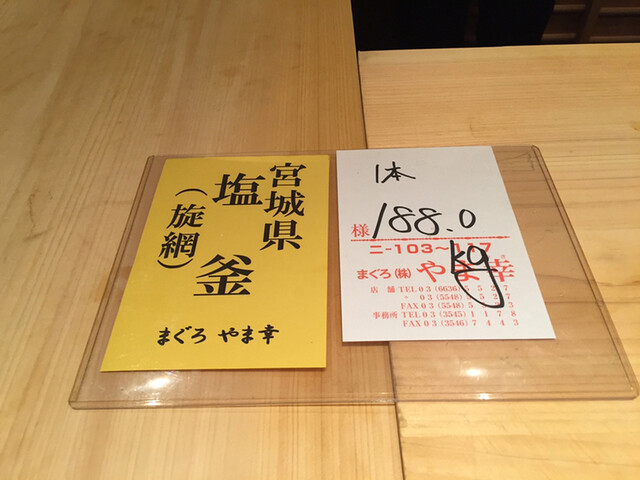 宮城県
塩釜
（旋網）
まぐろ やま幸
1本
188.0
kg
様
ニ-103～117
まぐろ(株)やま幸
店 舗 TEL 03 (6636) 5 5 2 7
〃 03 (5548) 5 5 2 7
FAX 03 (5548) 5
事務所 TEL 03 (3545) 1 1 7 8
FAX 03 (3546) 7 4 4 3